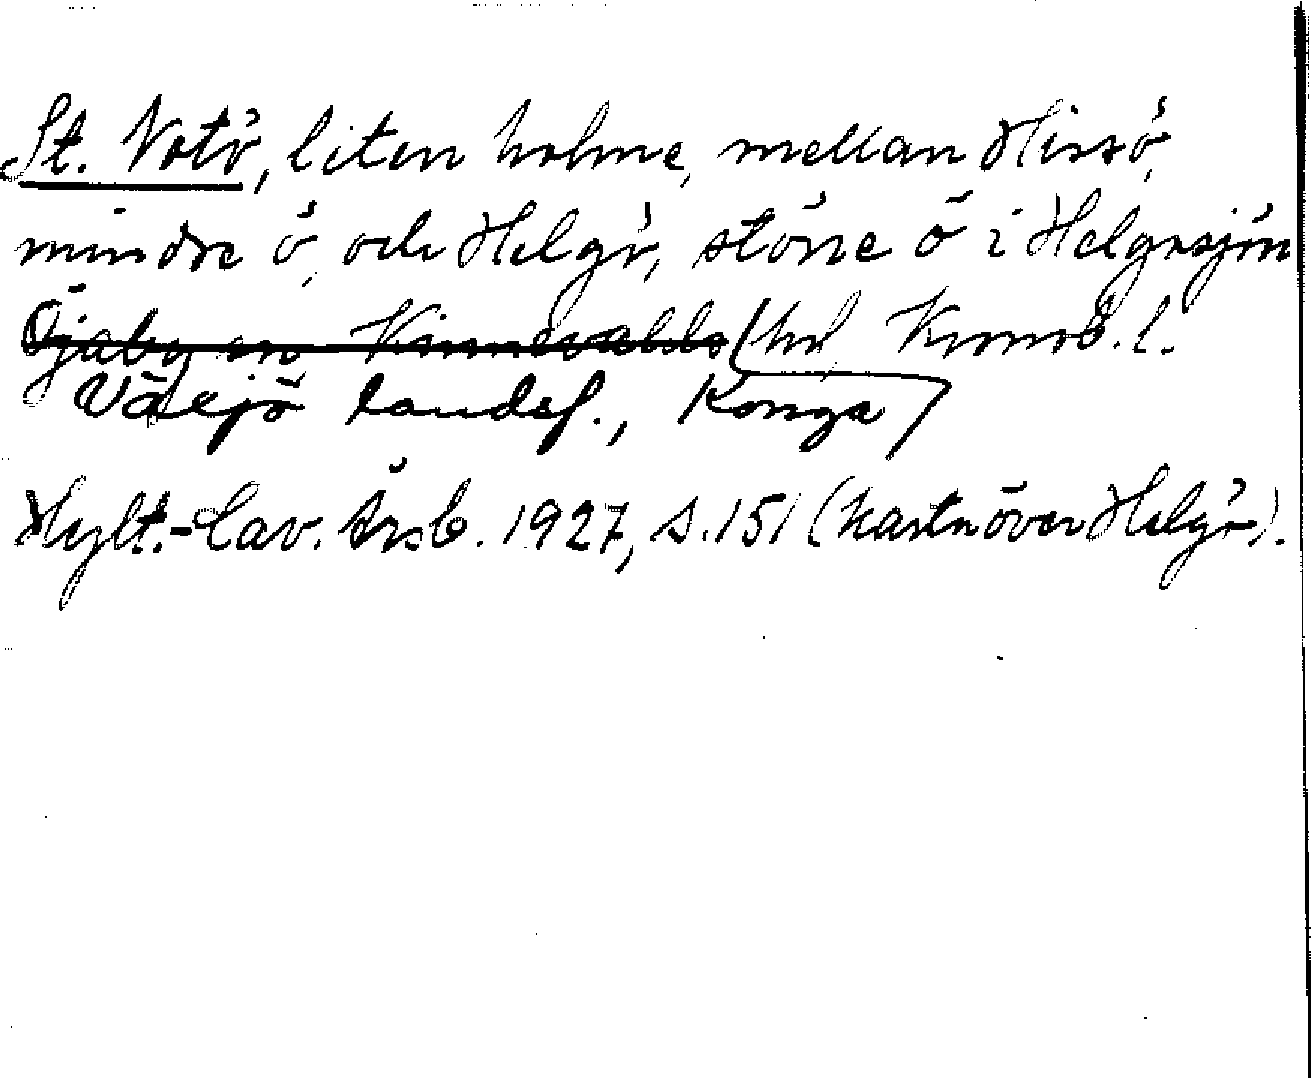 St. Notö, liten holme, mellan Hissö,
mindre ö, och Helgö, större ö i Helgasjön
Öjaby sn Kinnevalds hd, Kronob. l.
Växjö landsf., Konga
Hylt.-Cav. Årsb. 1927, s. 151 (karta över Helgö).